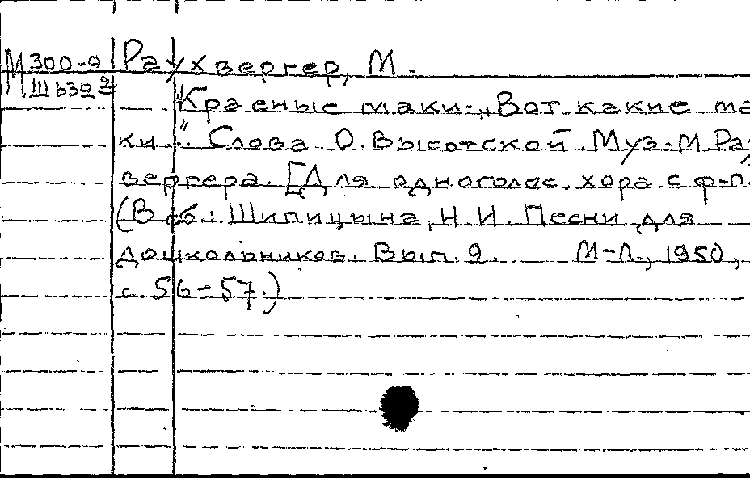 М 300-9 Раухвергер, М.
Ш 6392
"Красные маки. „Вот какие ма
ки". Слова О. Высотской. Муз. М. Рау
вергера. [Для одноголос. хора с ф-п.
(В сб.: Шипицына, Н. И. Песни для
дошкольников. Вып. 2. М-Л., 1950,
с. 56-57.)